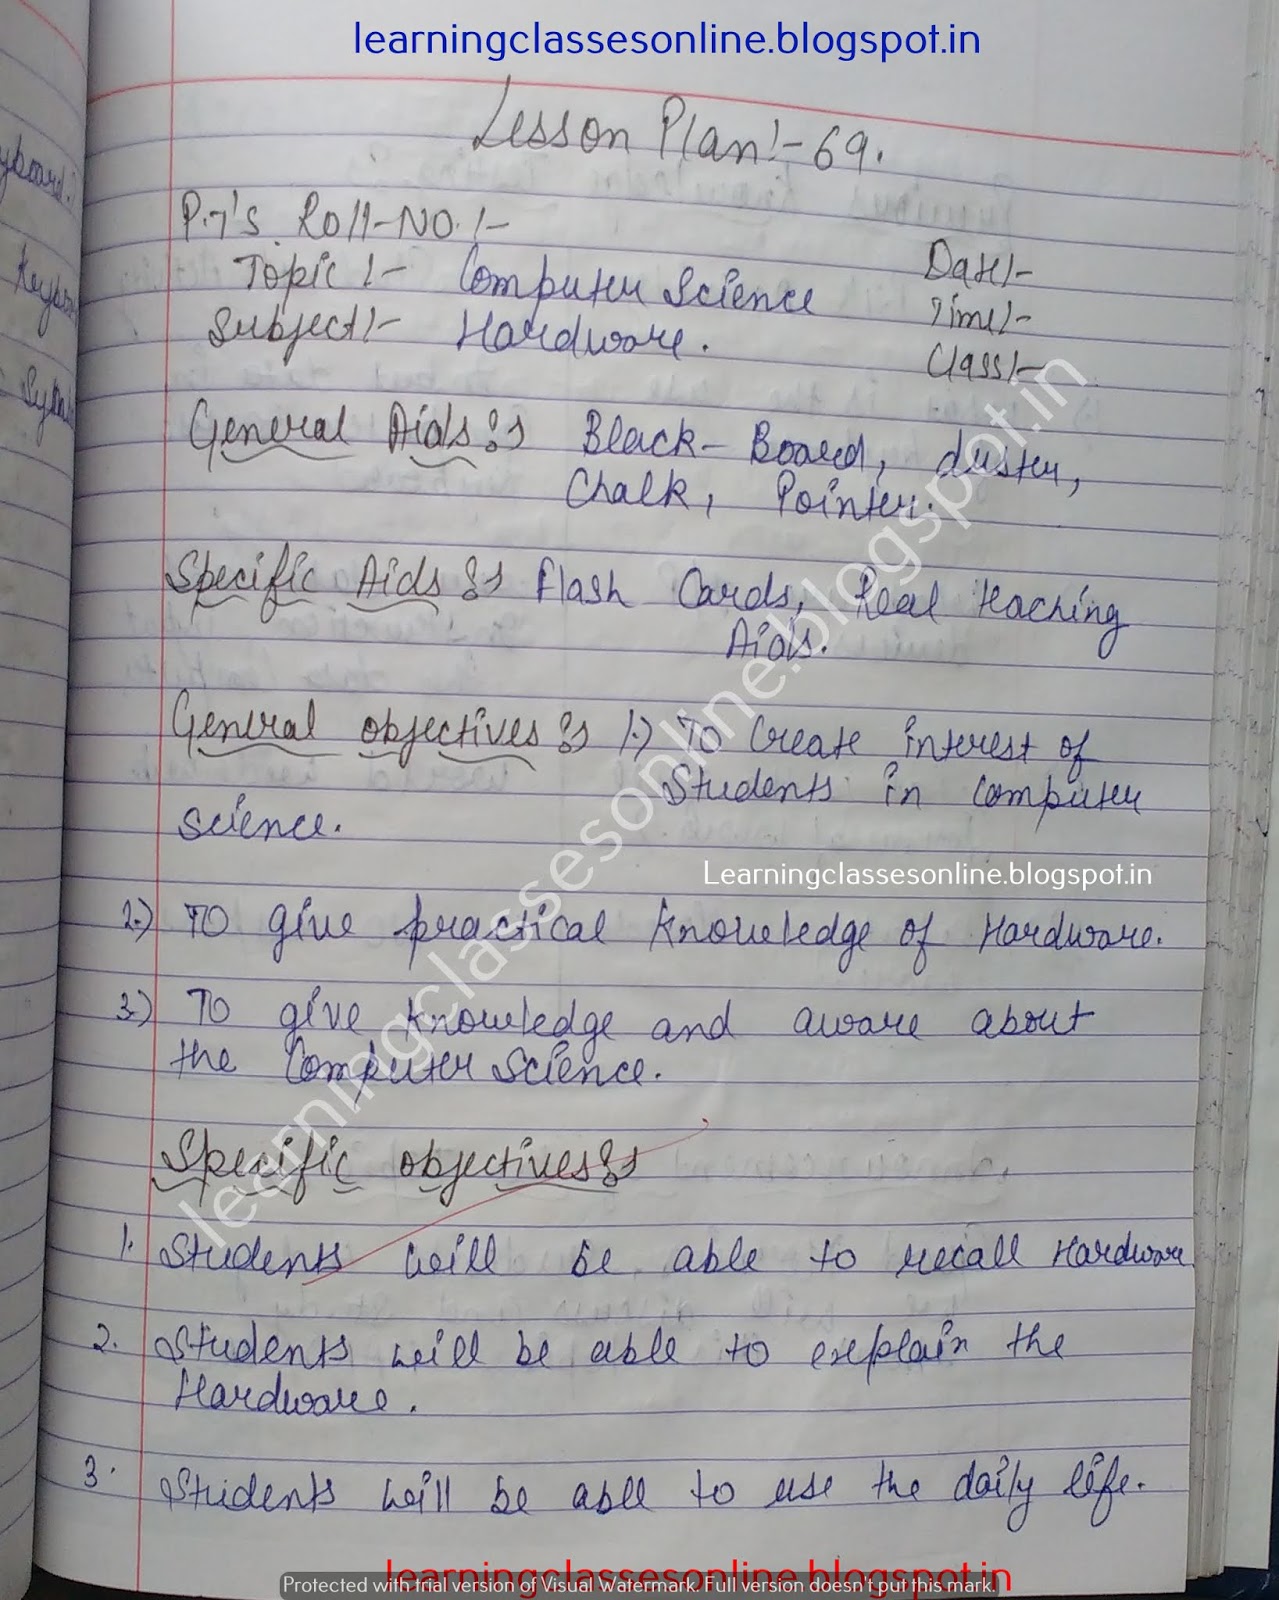 learningclassesonline.blogspot.in
Lesson Plan:-69.
P.T's Roll-NO.:-
Topic:- Computer Science
Date:-
Time:-
Subject:- Hardware.
Class:-
General Aids:- Black-Board, duster,
Chalk, Pointer.
Specific Aids:- Flash Cards, Real teaching
Aids.
General objectives:- 1.) To Create interest of
Students in Computer
Science.
Learningclassesonline.blogspot.in
2.) TO give practical knowledge of Hardware.
3.) To give knowledge and aware about
the Computer Science.
Specific objectives:-
1. Students will be able to recall Hardware
2. Students will be able to explain the
Hardware.
3. Students will be able to use the daily life.
learningclassesonline.blogspot.in
learningclassesonline.blogspot.in
Protected with trial version of Visual Watermark. Full version doesn't put this mark.